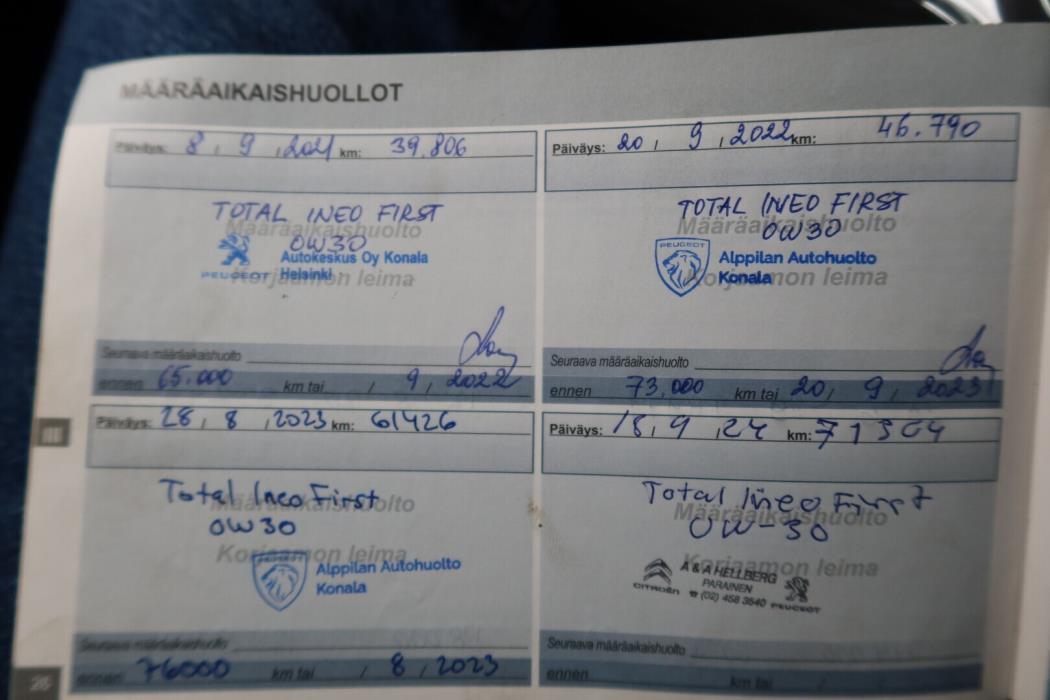 MÄÄRÄAIKAISHUOLLOT
Päiväys: 8, 9, 2021 km: 39,806
TOTAL INEO FIRST
Määräaikaishuolto
0W30
Autokeskus Oy Konala
PEUGEOT Helsinki
Korjaamon leima
Seuraava määräaikaishuolto
ennen 65.000 km tai / 9, 2022
Päiväys: 20, 9, 2022 km: 46.790
TOTAL INEO FIRST
Määräaikaishuolto
0W30
PEUGEOT
Alppilan Autohuolto
Konala
Korjaamon leima
Seuraava määräaikaishuolto
ennen 73,000 km tai 20, 9, 2023
Päiväys: 28, 8, 2023 km: 61426
Total Ineo First
Määräaikaishuolto
0W30
Korjaamon leima
Alppilan Autohuolto
Konala
Seuraava määräaikaishuolto
ennen 76000 km tai / 8, 2023
Päiväys: 18, 9, 24 km: 71304
Total Ineo First
Määräaikaishuolto
0W-30
Korjaamon leima
A & A HELLBERG
PARAINEN
CITROËN ☎ (02) 458 3540 PEUGEOT
Seuraava määräaikaishuolto
ennen km tai
26